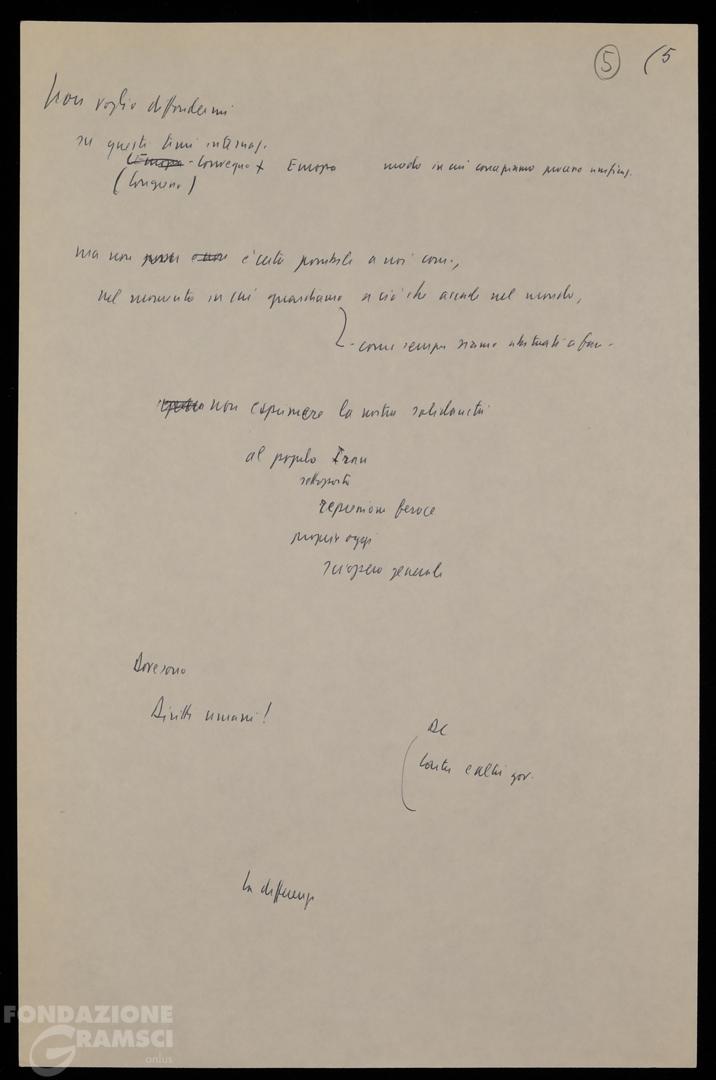 5 (5
Non voglio diffondermi
su questi temi internaz.
Europa - Convegno x Europa modo in cui concepiamo processo unificaz.
(Longo)
ma non è certo possibile a noi com.,
nel momento in cui guardiamo a ciò che accade nel mondo,
- come sempre siamo abituati a fare -
non esprimere la nostra solidarietà
al popolo Iran
sottoposto
repressione feroce
proprio oggi
sciopero generale
Dove sono
Diritti umani!
DC
Carter e altri gov.
La differenza
FONDAZIONE
GRAMSCI
onlus